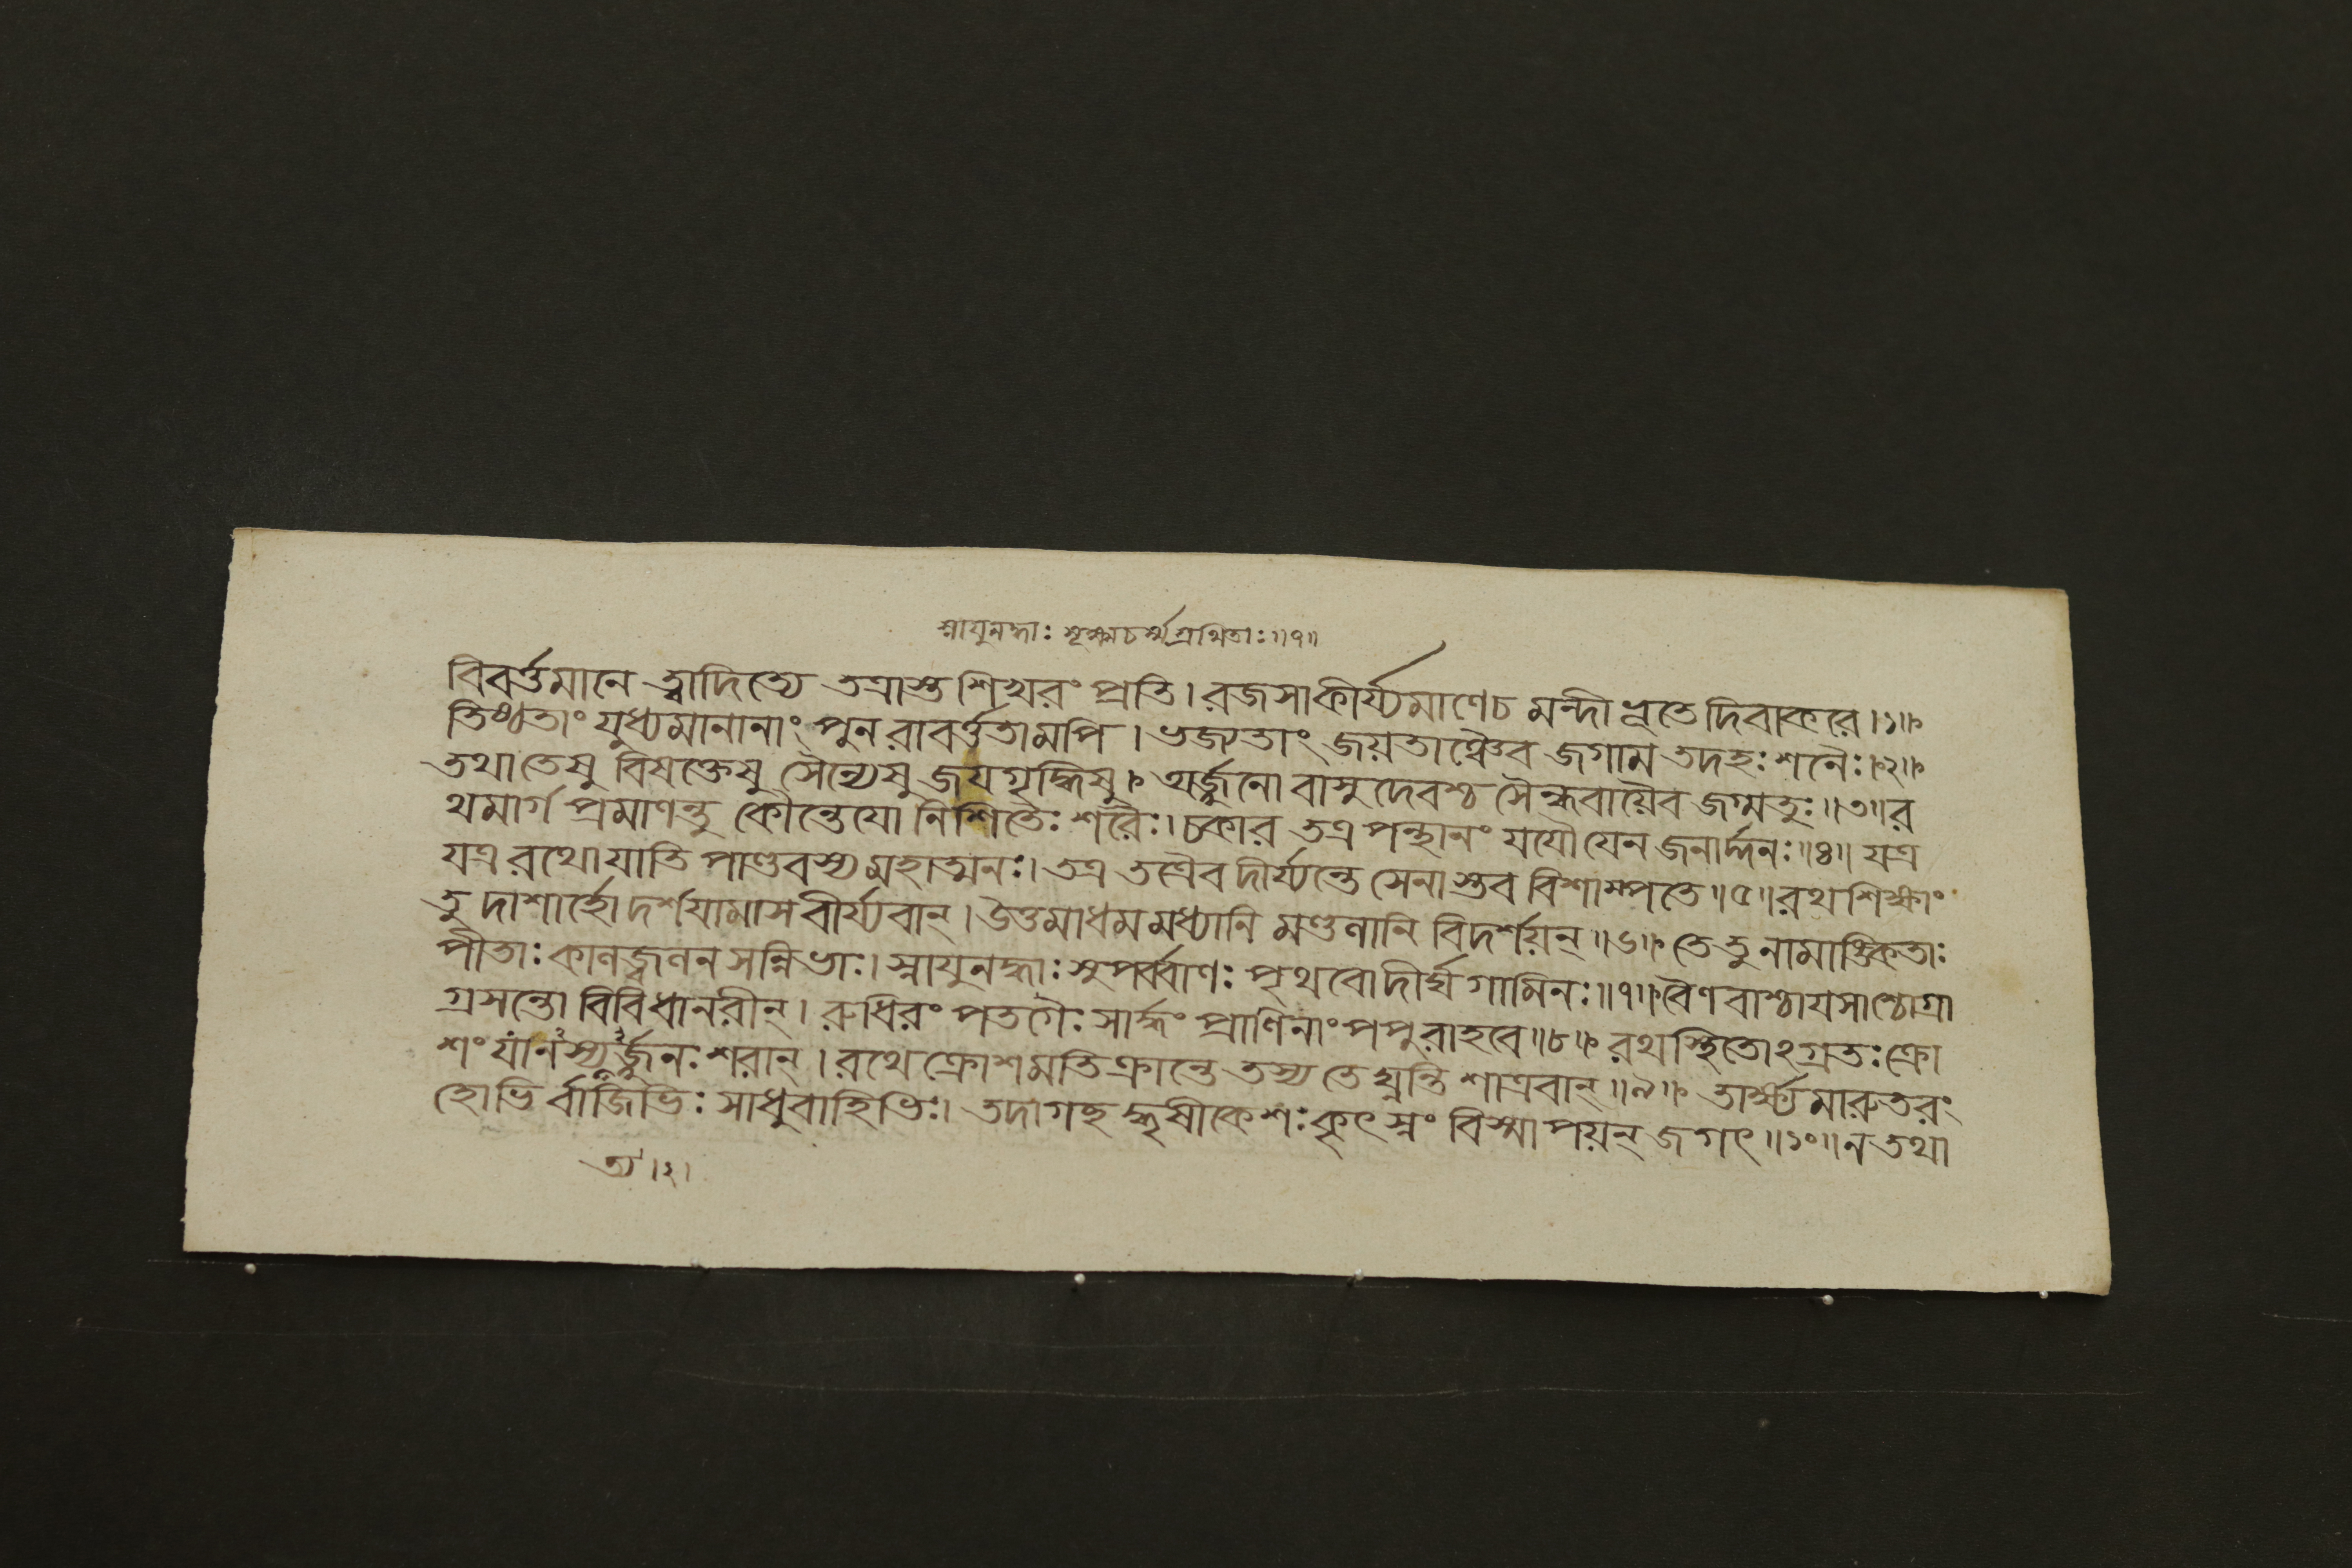 স্নাযুনদ্ধাঃ সূক্ষ্মচর্ম্মগ্রথিতাঃ॥৭॥
বিবর্ত্তমানে ত্বাদিত্যে তত্রাস্তশিখরং প্রতি। রজসাকীর্য্যমাণেচ মন্দীভূতে দিবাকরে।১॥
তিষ্ঠতাং যুধ্যমানানাং পুনরাবর্ত্ততামপি। ভজ্যতাং জয়তাঞ্চৈব জগাম তদহঃ শনৈঃ।২॥
তথা তেষু বিষক্তেষু সৈন্যেষু জযগৃদ্ধিষু। অর্জ্জুনো বাসুদেবশ্চ সৈন্ধবায়ৈব জগ্মতুঃ॥৩॥ র
থমার্গ প্রমাণন্তু কৌন্তেযো নিশিতৈঃ শরৈঃ। চকার তত্র পন্থানং যযৌ যেন জনার্দ্দনঃ॥৪॥ যত্র
যত্র রথো যাতি পাণ্ডবস্য মহাত্মনঃ। তত্র তত্রৈব দীর্য্যন্তে সেনাস্তব বিশাম্পতে॥৫॥ রথশিক্ষাং
তু দাশার্হো দর্শযামাস বীর্য্যবান্। উত্তমাধমমধ্যানি মণ্ডলানি বিদর্শয়ন্॥৬॥ তে তু নামাঙ্কিতাঃ
পীতাঃ কালজ্বলনসন্নিভাঃ। স্নাযুনদ্ধাঃ সুপর্ব্বাণঃ পৃথবো দীর্ঘগামিনঃ॥৭॥ বৈণবাশ্চাযসাশ্চোগ্রা
গ্রসন্তো বিবিধানরীন্। রুধিরং পতগৈঃ সার্দ্ধং প্রাণিনাং পপুরাহবে॥৮॥ রথস্থিতোঽগ্রতঃ ক্রো
শং যানস্যর্জ্জুনঃ শরান্। রথে ক্রোশমতিক্রান্তে তস্য তে ঘ্নন্তি শাত্রবান্॥৯॥ তার্ক্ষ্যমারুতরং
হোভির্বাজিভিঃ সাধুবাহিভিঃ। তদাগচ্ছ দ্ধৃষীকেশঃ কৃৎস্নং বিস্মাপয়ন্ জগৎ॥১০॥ ন তথা
ত্য।২।